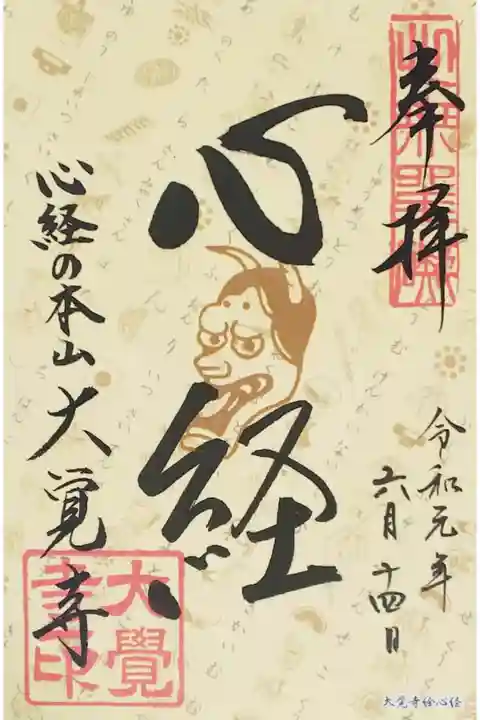 奉拝
令和元年
六月十四日
心経
心経の本山大覚寺
大覺
寺印
大覚寺絵心経